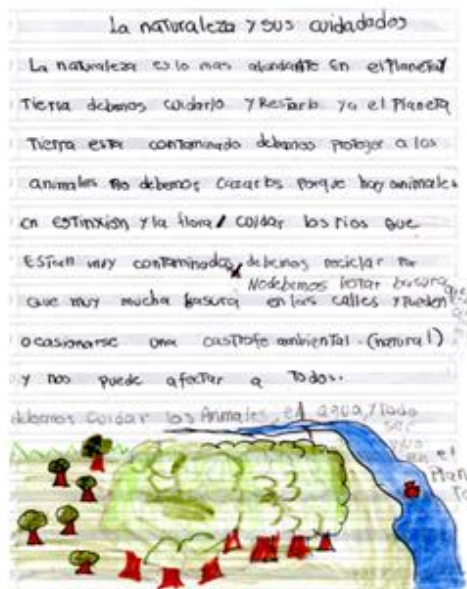 La naturaleza y sus cuidadados
La naturaleza es lo mas abundante En el Planeta
Tierra debemos cuidarlo y Resetarlo ya el Planeta
Tierra esta contaminado debemos proteger a los
animales no debemos cazarlos porque hay animales
en estinxion y la flora / cuidar los rios que
Estan muy contaminados, debemos reciclar
No debemos botar basura
que muy mucha basura en las calles y pueden
ocasionarse una castrofe ambiental. (natural)
y nos puede afectar a Todos.
debemos cuidar los Animales, el agua, y todo
ser
vivo
en el